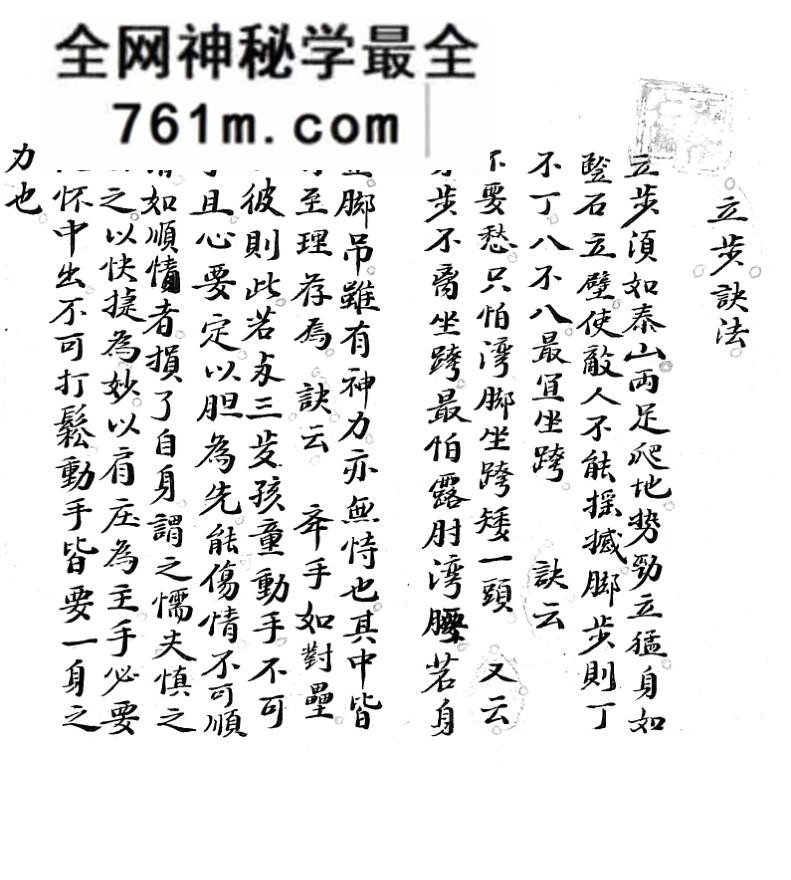 全网神秘学最全
761m.com
立步訣法
立步須如泰山両足爬地势勁立猛身如
竪石立壁使敵人不能摇撼脚步則丁
不丁八不八最宜坐跨 訣云
不要愁只怕湾脚坐跨矮一頭 又云
步不离坐跨最怕露肘湾腰若身
脚吊雖有神力亦無恃也其中皆
至理存焉 訣云 卒手如對壘
彼則此若与三岁孩童動手不可
且心要定以胆為先能傷情不可順
情如順情者損了自身謂之懦夫慎之
之以快捷為妙以肩庄為主手必要
怀中出不可打鬆動手皆要一身之
力也